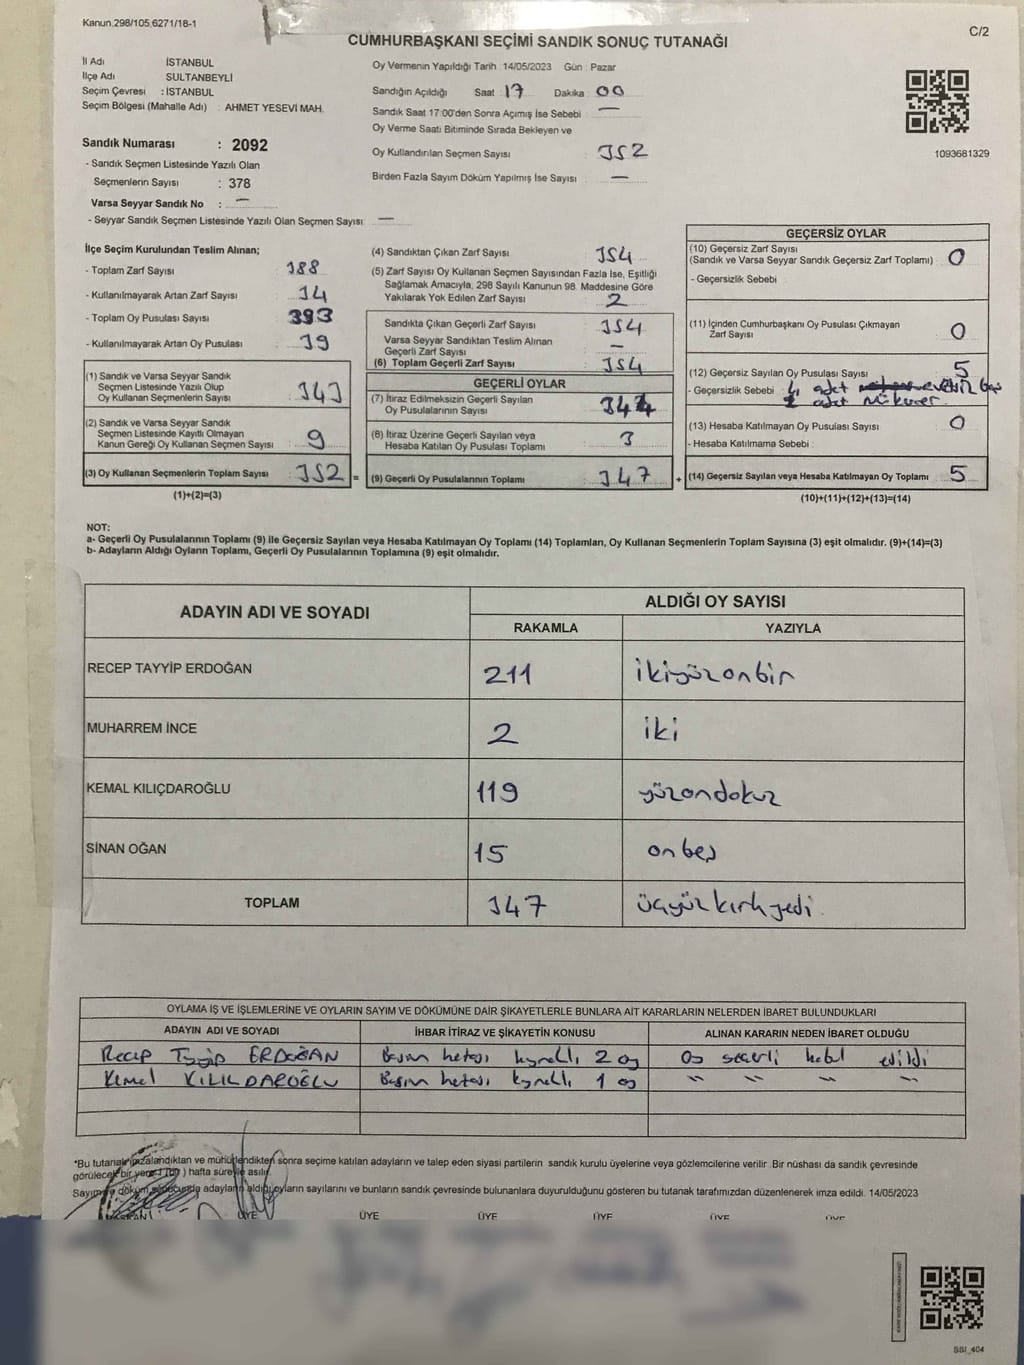 Kanun.298/105,6271/18-1
C/2
CUMHURBAŞKANI SEÇİMİ SANDIK SONUÇ TUTANAĞI
İl Adı İSTANBUL
İlçe Adı SULTANBEYLİ
Seçim Çevresi : İSTANBUL
Seçim Bölgesi (Mahalle Adı) : AHMET YESEVİ MAH.
Sandık Numarası : 2092
- Sandık Seçmen Listesinde Yazılı Olan
Seçmenlerin Sayısı : 378
Varsa Seyyar Sandık No : —
- Seyyar Sandık Seçmen Listesinde Yazılı Olan Seçmen Sayısı: —
Oy Vermenin Yapıldığı Tarih : 14/05/2023 Gün : Pazar
Sandığın Açıldığı Saat : 17 Dakika : 00
Sandık Saat 17:00'den Sonra Açımış İse Sebebi : —
Oy Verme Saati Bitiminde Sırada Bekleyen ve
Oy Kullandırılan Seçmen Sayısı : 352
Birden Fazla Sayım Döküm Yapılmış İse Sayısı : —
1093681329
İlçe Seçim Kurulundan Teslim Alınan;
- Toplam Zarf Sayısı : 388
- Kullanılmayarak Artan Zarf Sayısı : 34
- Toplam Oy Pusulası Sayısı : 393
- Kullanılmayarak Artan Oy Pusulası : 39
(1) Sandık ve Varsa Seyyar Sandık
Seçmen Listesinde Yazılı Olup
Oy Kullanan Seçmenlerin Sayısı : 343
(2) Sandık ve Varsa Seyyar Sandık
Seçmen Listesinde Kayıtlı Olmayan
Kanun Gereği Oy Kullanan Seçmen Sayısı : 9
(3) Oy Kullanan Seçmenlerin Toplam Sayısı : 352 =
(1)+(2)=(3)
(4) Sandıktan Çıkan Zarf Sayısı : 354
(5) Zarf Sayısı Oy Kullanan Seçmen Sayısından Fazla İse, Eşitliği
Sağlamak Amacıyla, 298 Sayılı Kanunun 98. Maddesine Göre
Yakılarak Yok Edilen Zarf Sayısı : 2
Sandıkta Çıkan Geçerli Zarf Sayısı : 354
Varsa Seyyar Sandıktan Teslim Alınan
Geçerli Zarf Sayısı : —
(6) Toplam Geçerli Zarf Sayısı : 354
GEÇERLİ OYLAR
(7) İtiraz Edilmeksizin Geçerli Sayılan
Oy Pusulalarının Sayısı : 344
(8) İtiraz Üzerine Geçerli Sayılan veya
Hesaba Katılan Oy Pusulası Toplamı : 3
(9) Geçerli Oy Pusulalarının Toplamı : 347 +
GEÇERSİZ OYLAR
(10) Geçersiz Zarf Sayısı
(Sandık ve Varsa Seyyar Sandık Geçersiz Zarf Toplamı) : 0
- Geçersizlik Sebebi :
(11) İçinden Cumhurbaşkanı Oy Pusulası Çıkmayan
Zarf Sayısı : 0
(12) Geçersiz Sayılan Oy Pusulası Sayısı : 5
- Geçersizlik Sebebi : 4 adet
adet Mükerrer
(13) Hesaba Katılmayan Oy Pusulası Sayısı : 0
- Hesaba Katılmama Sebebi :
(14) Geçersiz Sayılan veya Hesaba Katılmayan Oy Toplamı : 5
(10)+(11)+(12)+(13)=(14)
NOT:
a- Geçerli Oy Pusulalarının Toplamı (9) ile Geçersiz Sayılan veya Hesaba Katılmayan Oy Toplamı (14) Toplamları, Oy Kullanan Seçmenlerin Toplam Sayısına (3) eşit olmalıdır. (9)+(14)=(3)
b- Adayların Aldığı Oyların Toplamı, Geçerli Oy Pusulalarının Toplamına (9) eşit olmalıdır.
ADAYIN ADI VE SOYADI ALDIĞI OY SAYISI
RAKAMLA YAZIYLA
RECEP TAYYİP ERDOĞAN 211 ikiyüzonbir
MUHARREM İNCE 2 iki
KEMAL KILIÇDAROĞLU 119 yüzondokuz
SİNAN OĞAN 15 onbeş
TOPLAM 347 üçyüzkırkyedi
OYLAMA İŞ VE İŞLEMLERİNE VE OYLARIN SAYIM VE DÖKÜMÜNE DAİR ŞİKAYETLERLE BUNLARA AİT KARARLARIN NELERDEN İBARET BULUNDUKLARI
ADAYIN ADI VE SOYADI İHBAR İTİRAZ VE ŞİKAYETİN KONUSU ALINAN KARARIN NEDEN İBARET OLDUĞU
Recep Tayyip ERDOĞAN Basım hatası kaynaklı 2 oy Oy geçerli kabul edildi
Kemal KILIÇDAROĞLU Basım hatası kaynaklı 1 oy " " " "
*Bu tutanak imzalandıktan ve mühürlendikten sonra seçime katılan adayların ve talep eden siyasi partilerin sandık kurulu üyelerine veya gözlemcilerine verilir. Bir nüshası da sandık çevresinde
görülecek bir yere 1 (bir) hafta süreyle asılır.
Sayım ve döküm sonucunda adayların aldığı oyların sayılarını ve bunların sandık çevresinde bulunanlara duyurulduğunu gösteren bu tutanak tarafımızdan düzenlenerek imza edildi. 14/05/2023
BAŞKAN ÜYE ÜYE ÜYE ÜYE ÜYE ÜYE
SSI_404